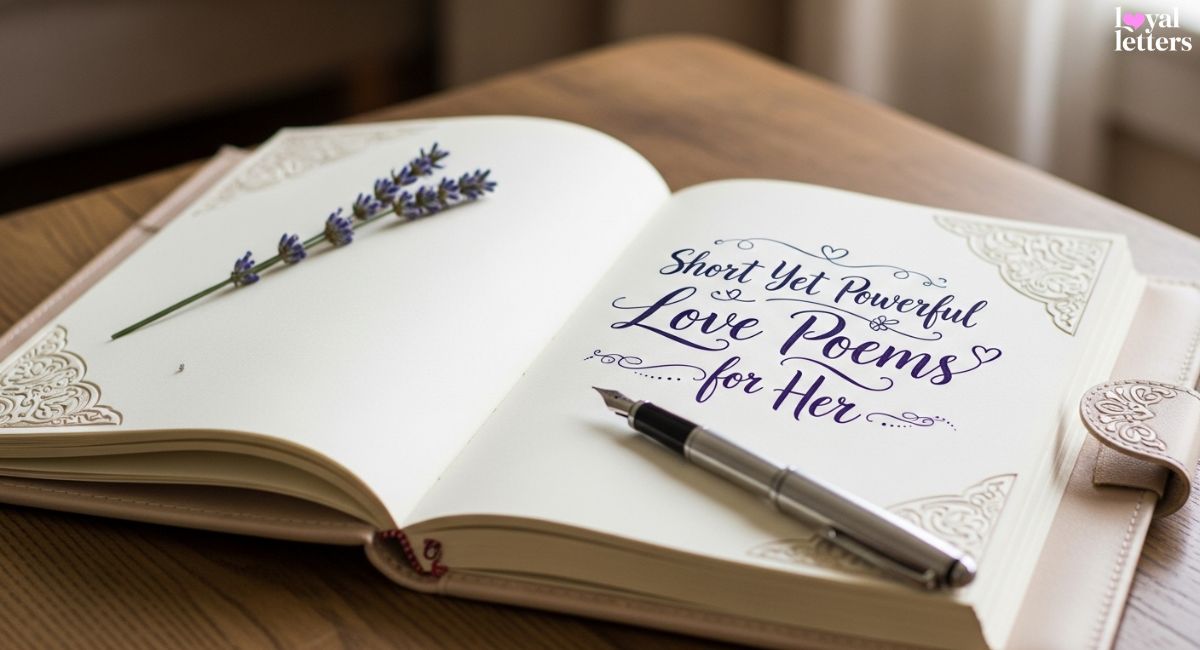 loyal
letters
Short Yet Powerful
Love Poems
for Her